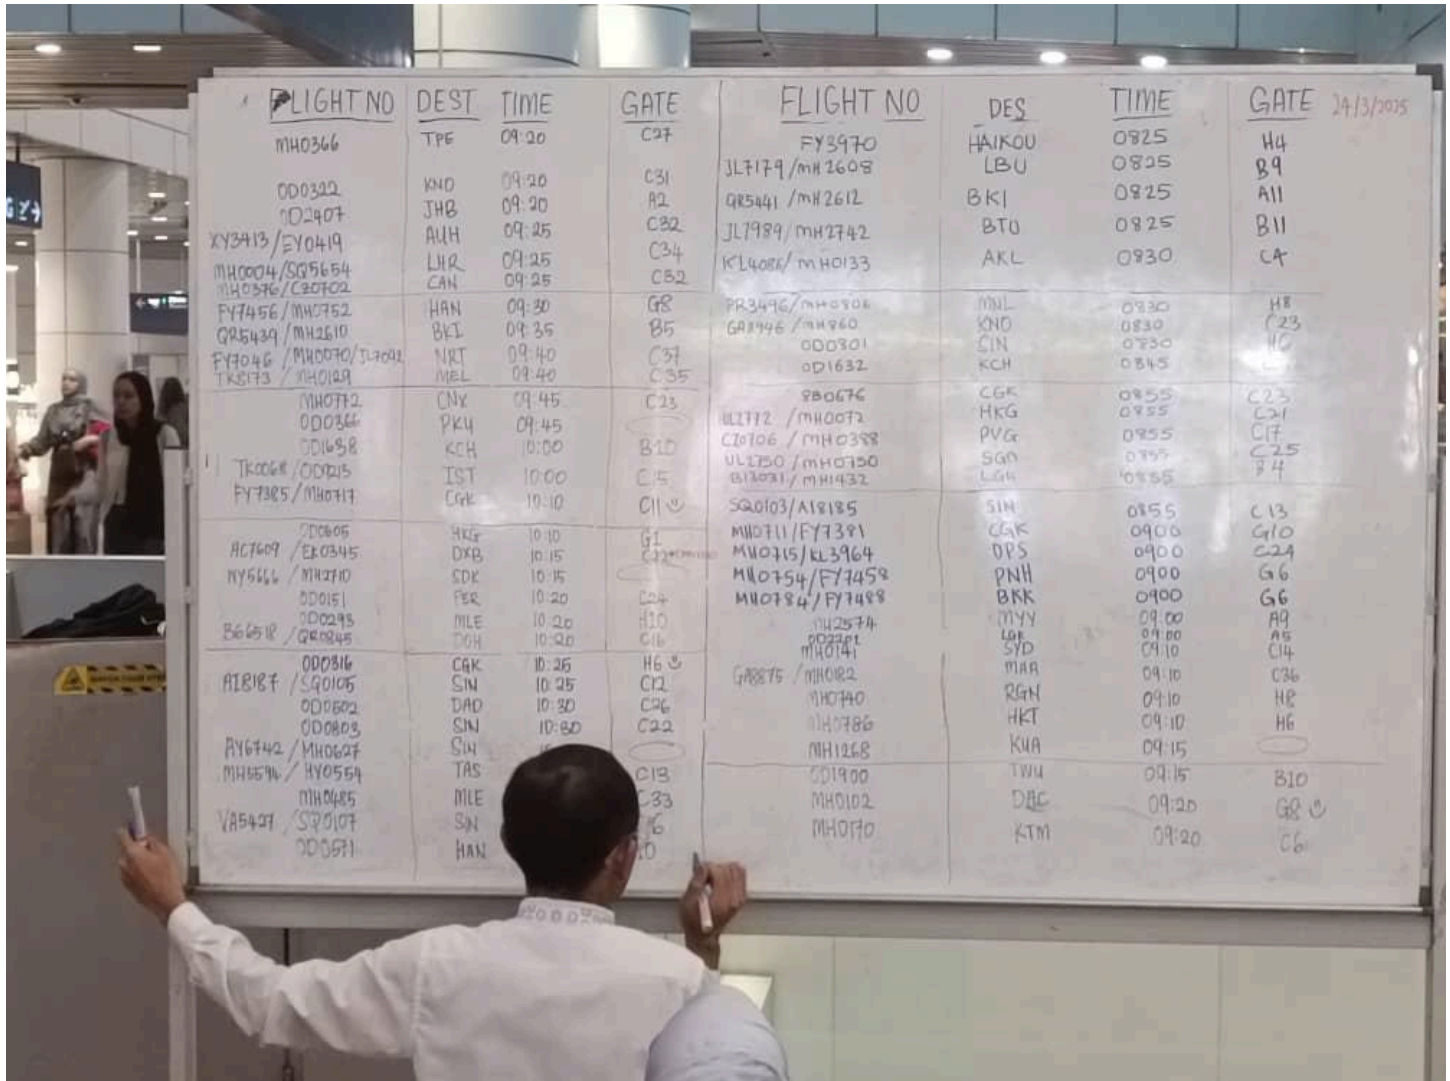 FLIGHT NO DEST TIME GATE
MH0366 TPE 09:20 C27
OD0322 KNO 09:20 C31
OD2407 JHB 09:20 A2
XY3413/EY0419 AUH 09:25 C32
MH0004/SQ5654 LHR 09:25 C34
MH0376/CZ0702 CAN 09:25 C32
FY7456/MH0752 HAN 09:30 G8
QR5439/MH2610 BKI 09:35 B5
FY7046/MH0070/JL7092 NRT 09:40 C37
TK8173/MH0129 MEL 09:40 C35
MH0772 CNX 09:45 C23
OD0366 PKU 09:45
OD1638 KCH 10:00 B10
TK0068/OD9215 IST 10:00 C15
FY7385/MH0717 CGK 10:10 C11
OD0605 HKG 10:10 G1
AC7609/EK0345 DXB 10:15
NY5666/MH2710 SDK 10:15
OD0151 PER 10:20 C24
OD0293 MLE 10:20 H10
BG6518/QR0845 DOH 10:20 C16
OD0316 CGK 10:25 H6
AI8187/SQ0105 SIN 10:25 C12
OD0502 DAD 10:30 C26
OD0803 SIN 10:30 C22
AY6742/MH0627 SIN
MH5594/HY0554 TAS C13
MH0485 MLE C33
VA5427/SQ0107 SIN
OD0571 HAN
FLIGHT NO DES TIME GATE 24/3/2025
FY3970 HAIKOU 0825 H4
JL7179/MH2608 LBU 0825 B9
QR5441/MH2612 BKI 0825 A11
JL7989/MH2742 BTU 0825 B11
KL4086/MH0133 AKL 0830 C4
PR3496/MH0806 MNL 0830 H8
GA8946/MH860 KNO 0830 C23
OD0301 0830
OD1632 KCH 0845
8B0676 CGK 0855 C23
UL2772/MH0072 HKG 0855 C21
CZ0706/MH0388 PVG 0855 C17
UL2750/MH0750 SGN 0855 C25
MH1432 LGK 0855 B4
SQ0103/AI8185 SIN 0855 C13
MH0711/FY7381 CGK 0900 G10
MH0715/KL3964 DPS 0900 C24
MH0754/FY7458 PNH 0900 G6
MH0784/FY7488 BKK 0900 G6
MH2574 MYY 09:00 A9
OD2201 LGK 09:00 A5
MH0141 SYD 09:10 C14
GA8875/MH0182 MAA 09:10 C36
MH0740 RGN 09:10 H8
MH0786 HKT 09:10 H6
MH1268 KUA 09:15
OD1900 TWU 09:15 B10
MH0102 DAC 09:20 G8
MH0170 KTM 09:20 C6